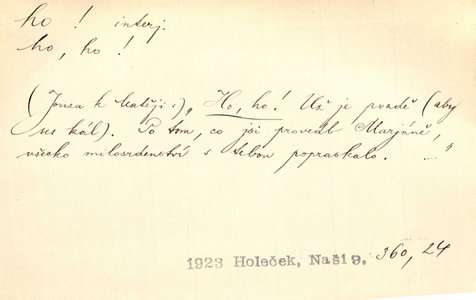 ho! interj.
ho, ho!
(Jouza k Matěji:) „Ho, ho! Už je pozdě (aby
ses kál). Po tom, co jsi provedl Marjáně,
všecko milosrdenství s tebou popraskalo. ...."
1923 Holeček, Naši 9. 360, 24